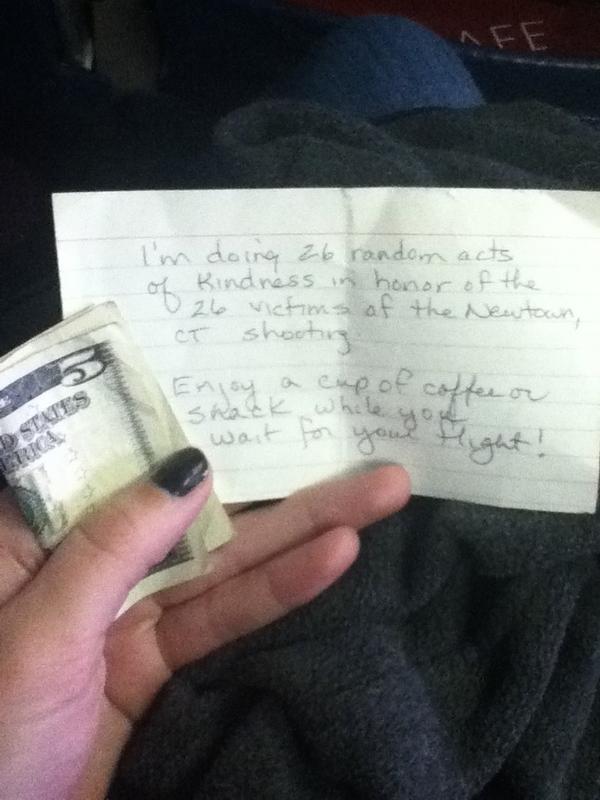 AFE
I'm doing 26 random acts
of Kindness in honor of the
26 victims of the Newtown,
CT shooting
Enjoy a cup of coffee or
snack while you
wait for your flight!
5
D STATES
ERICA